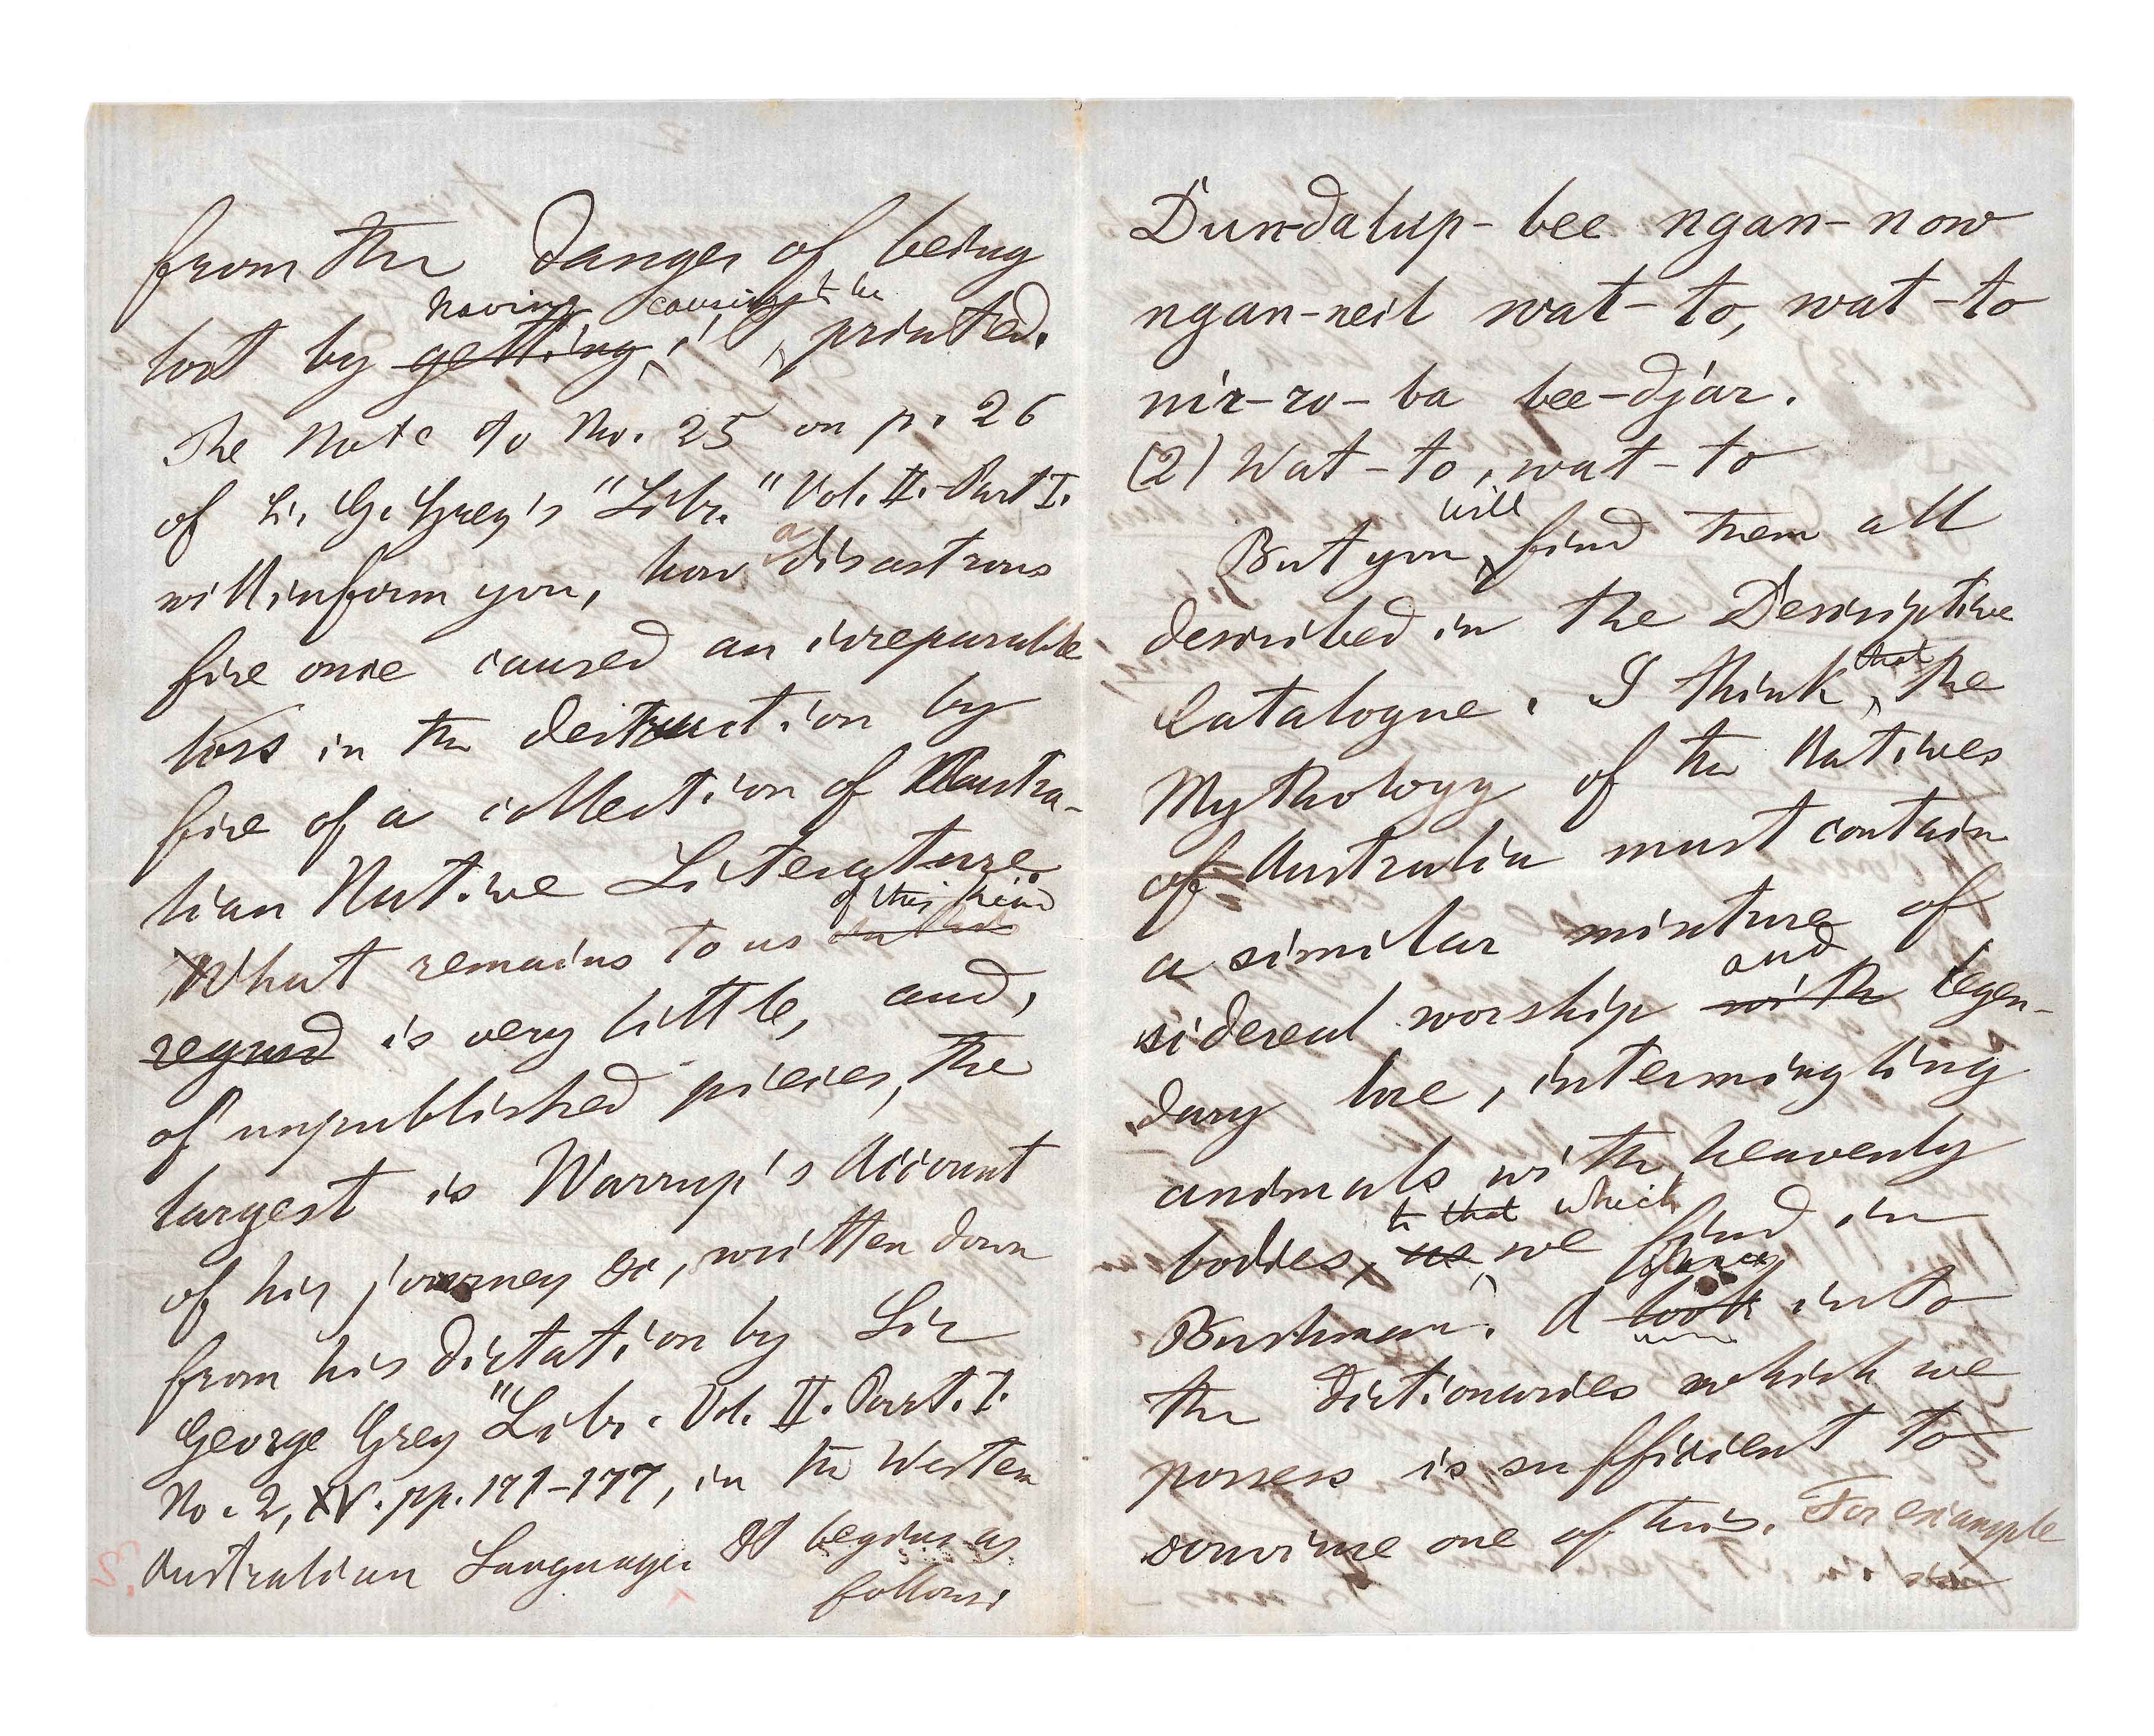 from the danger of being
having causing to be
lost by getting it printed.
The Note to No. 25 on p. 26
of Sir G. Grey's "Libr." Vol. II. Part I.
will inform you, how a disastrous
fire once caused an irreparable
loss in the destruction by
fire of a collection of Austra-
lian Native Literature.
of this kind
What remains to us
regard is very little, and,
of unpublished pieces, the
largest is Warrup's Account
of his journey &c, written down
from his dictation by Sir
George Grey "Libr. Vol. II. Part. I.
No. 2, XV. pp. 171-177, in the Western
Australian Language. It begins as
follows:
Dun-dalup-bee ngan-now
ngan-neil wat-to, wat-to
nir-ro-ba bee-djar.
(2) Wat-to, wat-to
will
But you find them all
described in the Descriptive
that
Catalogue. I think the
Mythology of the Natives
of Australia must contain
a similar mixture of
and
sidereal worship with legen-
dary lore, intermingling
animals with heavenly
to that which
bodies, as we find in
glance
Bushman. A look into
the Dictionaries which we
possess is sufficient to
convince one of this. For example